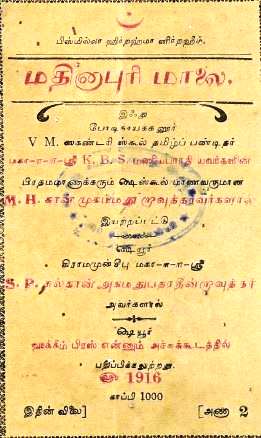 பிஸ்மில்லா ஹிர்றஹ்மா னிர்றஹீம்.
மதினாபுரி மாலை.
இஃது
போடிநாயக்கனூர்
V M. ஸகண்டரி ஸ்கூல் தமிழ்ப் பண்டிதர்
மகா-ள-ள-ஸ்ரீ K. B. S. மணியபாரதி யவர்களின்
பிரதமமாணாக்கரும் ஷெஸ்கூல் மாணவருமான
M. H. காதர் முகம்மது றாவுத்தரவர்களால்
இயற்றப்பட்டு
ஷெயூர்
கிராமமுன்சீபு மகா-ள-ள-ஸ்ரீ
S. P. சுல்கான் அகமதுபதாதின்றாவுத்தர்
அவர்களால்
ஷெயூர்
ஹக்கீம் பிரஸ் என்னும் அச்சுக்கூடத்தில்
பதிப்பிக்கலுற்றது
1916
காப்பி 1000
இதின் விலை] [அணா 2